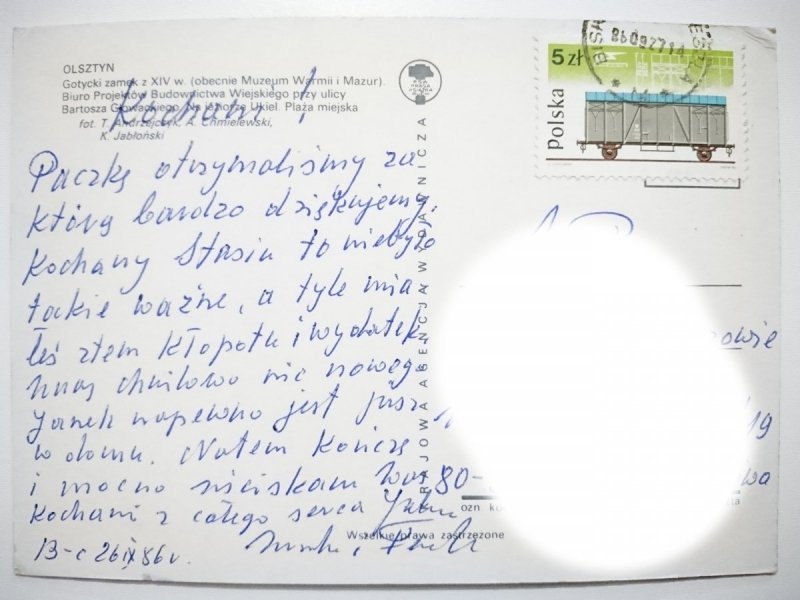 OLSZTYN
Gotycki zamek z XIV w. (obecnie Muzeum Warmii i Mazur).
Biuro Projektów Budownictwa Wiejskiego przy ulicy
Bartosza Głowackiego. Na jeziorze Ukiel. Plaża miejska
fot. T. Andrzejczyk, A. Chmielewski,
K. Jabłoński
Kochani!
Paczkę otrzymaliśmy za
którą bardzo dziękujemy,
Kochany Stasiu to niebyło
takie ważne, a tyle mia
łeś ztem kłopotu i wydatek
u nas chwilowo nic nowego
Janek napewno jest już
w domu. Natem kończę
i mocno uściskam Was
Kochani z całego serca
B-c 26 IX 86 r.
KRAJOWA AGENCJA WYDAWNICZA
Wszelkie prawa zastrzeżone
5 zł
Polska
80-
19